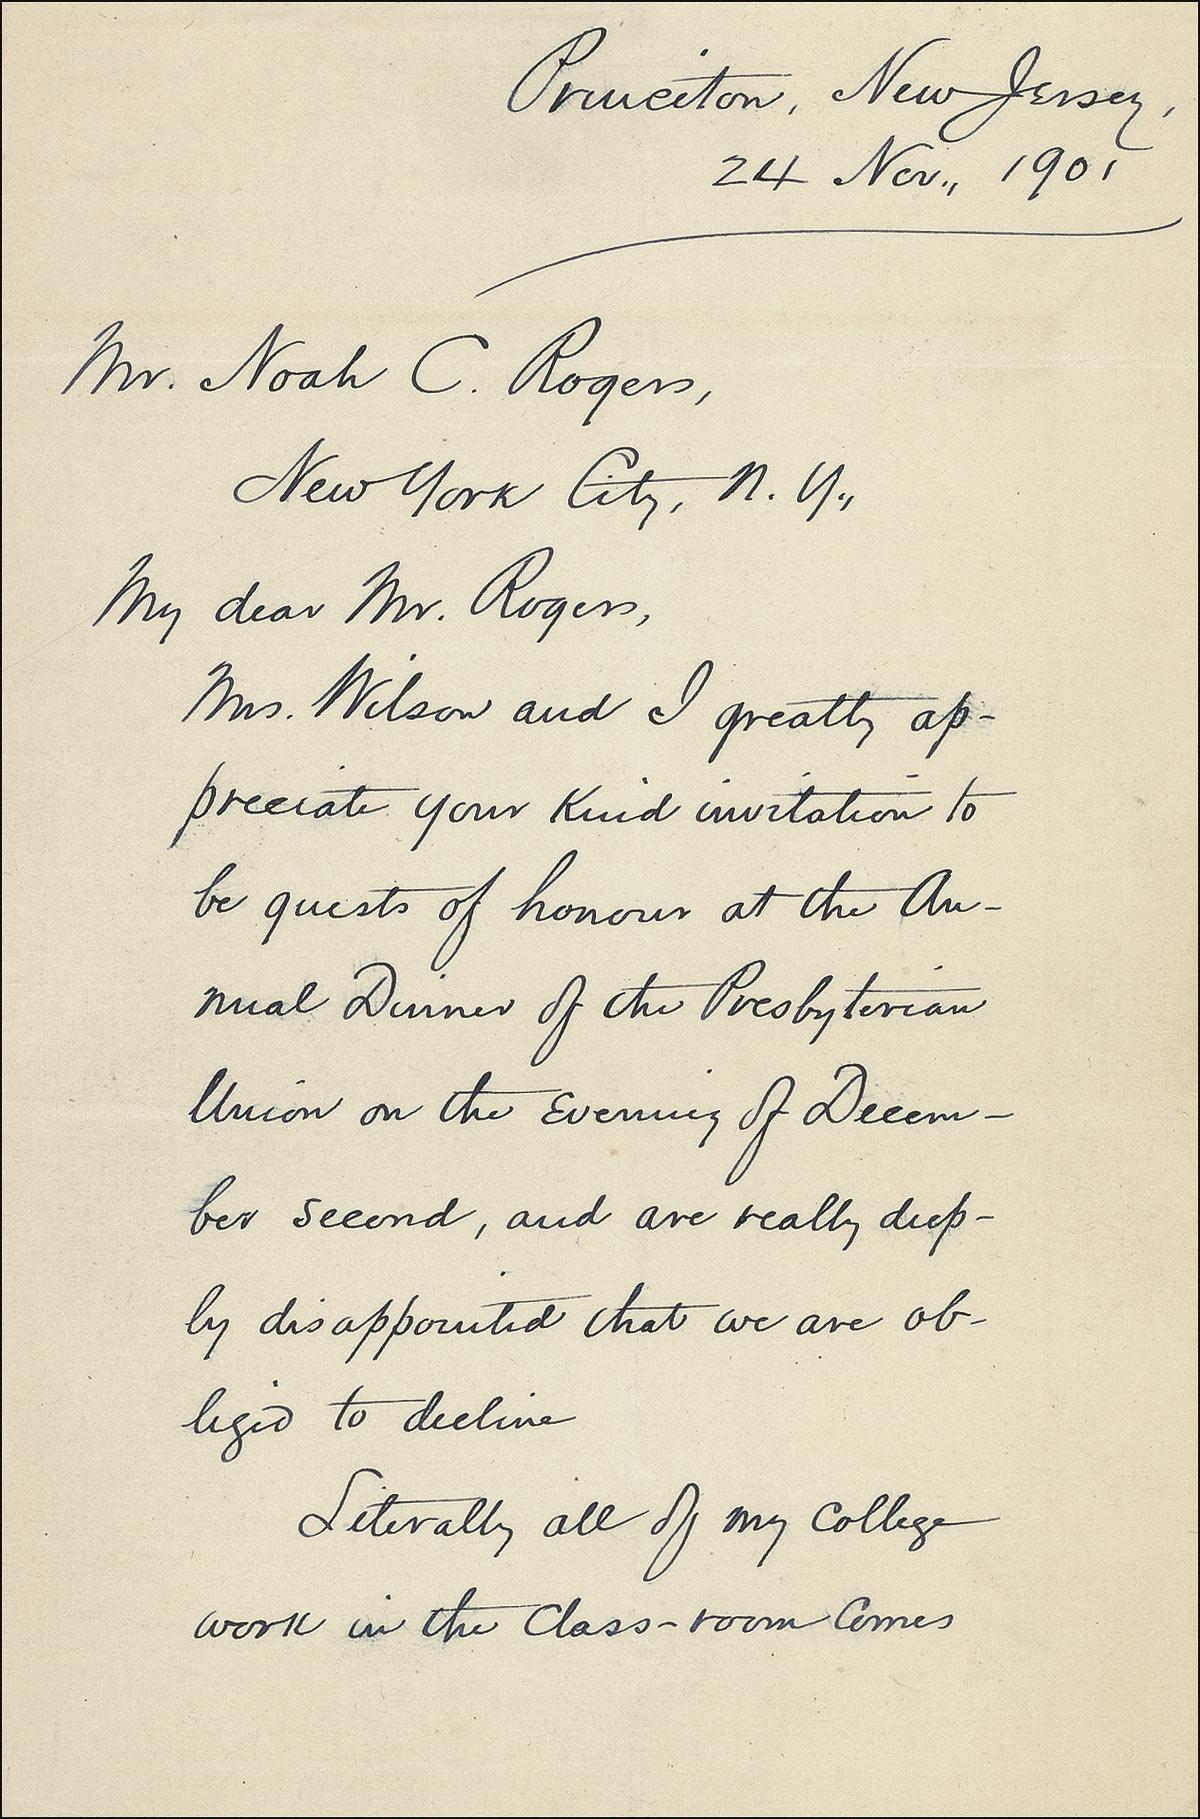 Princeton, New Jersey,
24 Nov., 1901
Mr. Noah C. Rogers,
New York City, N. Y.,
My dear Mr. Rogers,
Mrs. Wilson and I greatly ap-
preciate your kind invitation to
be guests of honour at the An-
nual Dinner of the Presbyterian
Union on the evening of Decem-
ber second, and are really deep-
ly disappointed that we are ob-
liged to decline
Literally all of my college
work in the class-room comes